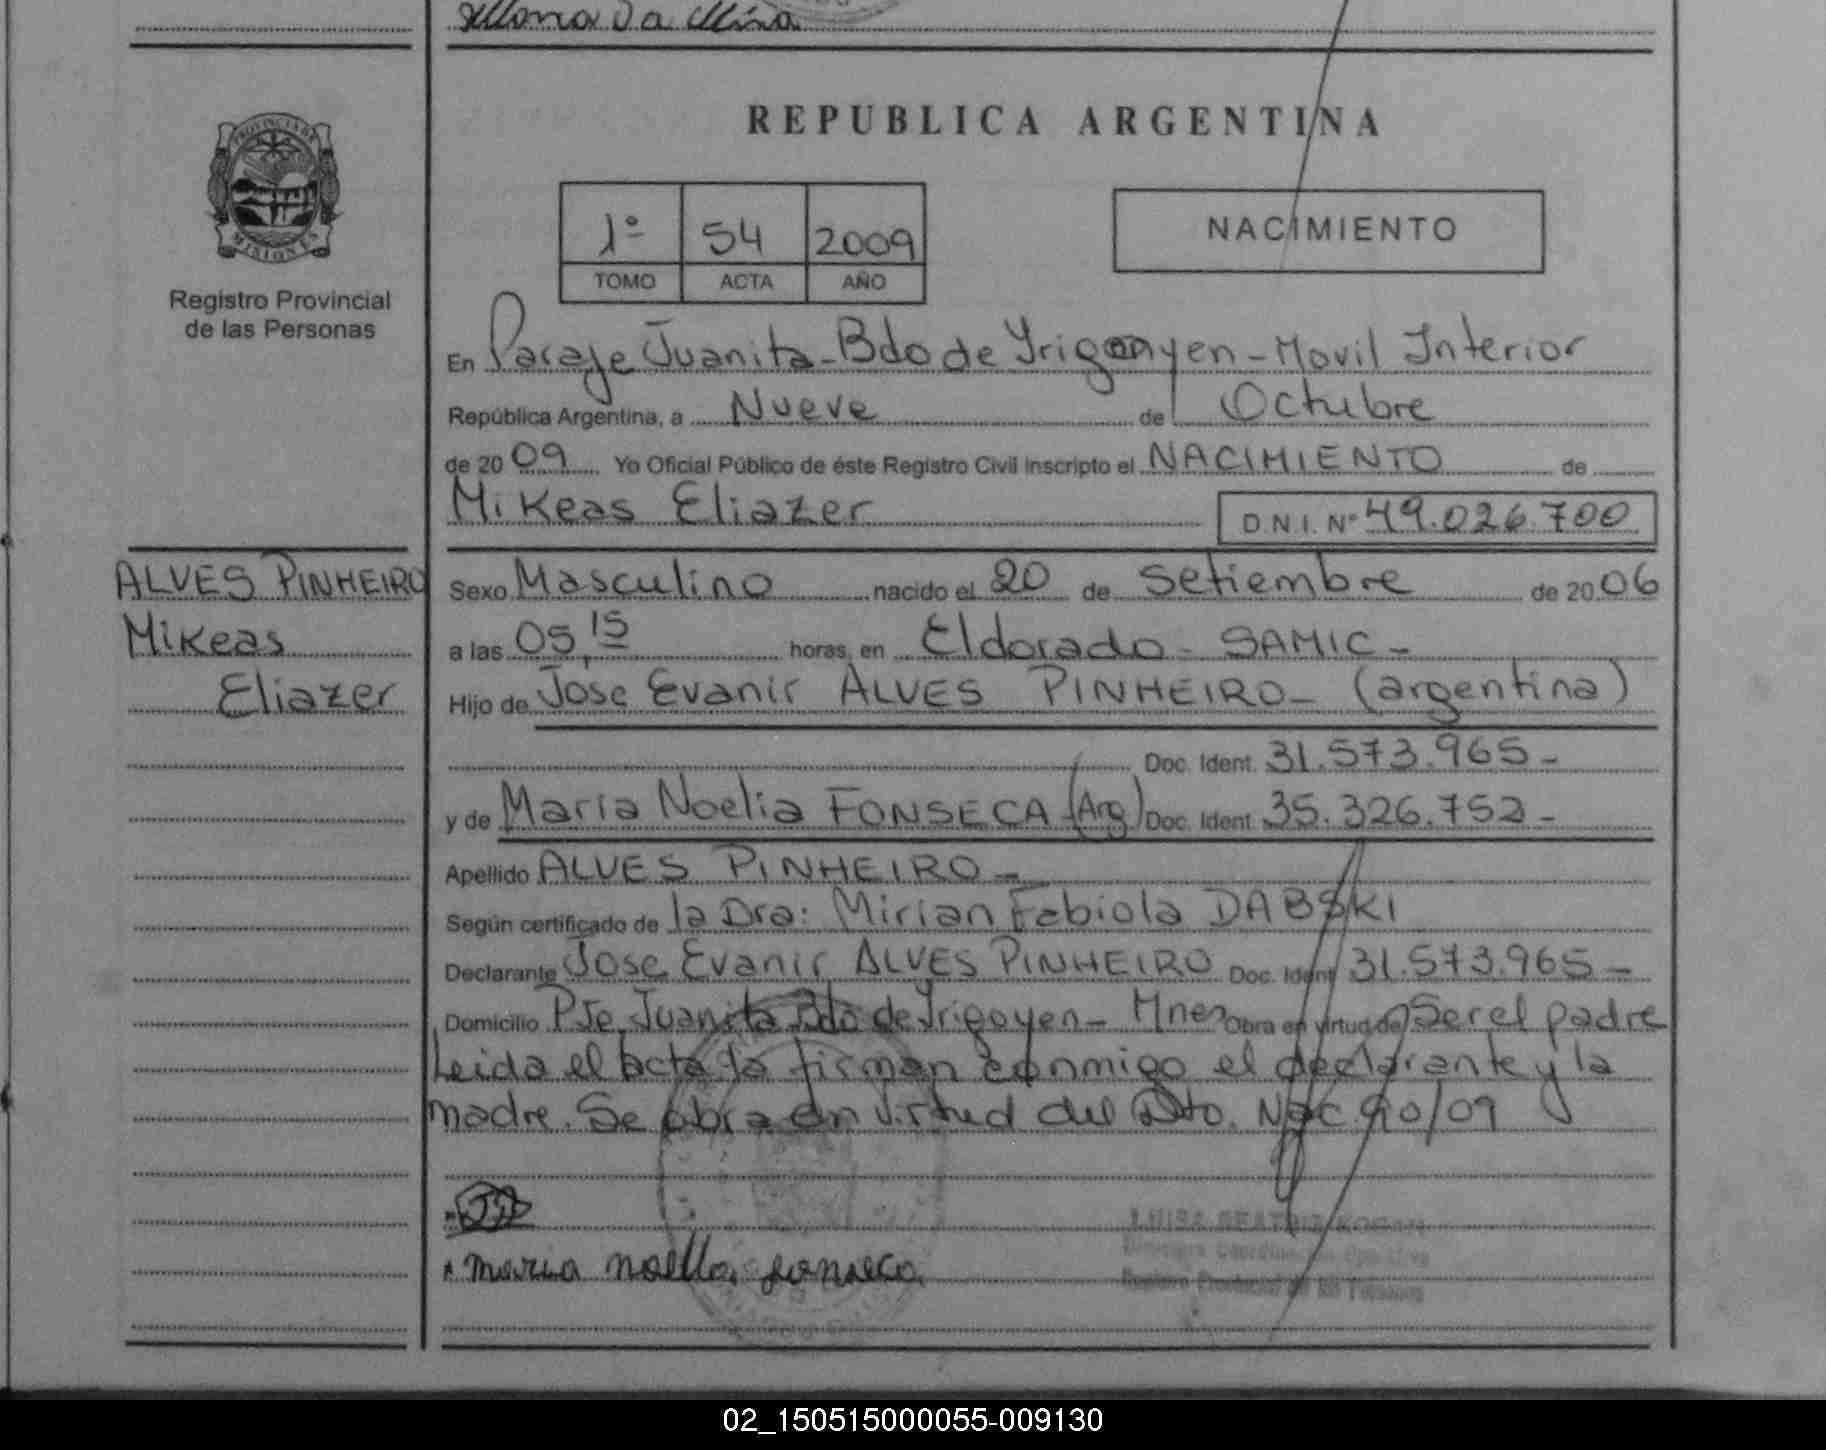 REPUBLICA ARGENTINA
PROVINCIA DE
MISIONES
Registro Provincial
de las Personas
1º 54 2009
TOMO ACTA AÑO
NACIMIENTO
En Paraje Juanita - Bdo de Yrigoyen - Movil Interior
República Argentina, a Nueve de Octubre
de 2009 Yo Oficial Público de éste Registro Civil inscripto el NACIMIENTO de
Mikeas Eliazer D.N.I. Nº 49.026.700
ALVES PINHEIRO
Mikeas
Eliazer
Sexo Masculino nacido el 20 de Setiembre de 2006
a las 05,15 horas, en Eldorado - SAMIC -
Hijo de Jose Evanir ALVES PINHEIRO - (argentina)
Doc. Ident. 31.573.965 -
y de Maria Noelia FONSECA (Arg) Doc. Ident. 35.326.752 -
Apellido ALVES PINHEIRO -
Según certificado de la Dra: Mirian Fabiola DABSKI
Declarante Jose Evanir ALVES PINHEIRO Doc. Ident 31.573.965 -
Domicilio Pje. Juanita Bdo de Yrigoyen - Mnes Obra en virtud de Ser el padre
Leida el acta la firman conmigo el declarante y la
madre. Se obra en virtud del Dto. Nac. 90/09
maria noelia fonseca
Registro Provincial de las Personas
02_150515000055-009130